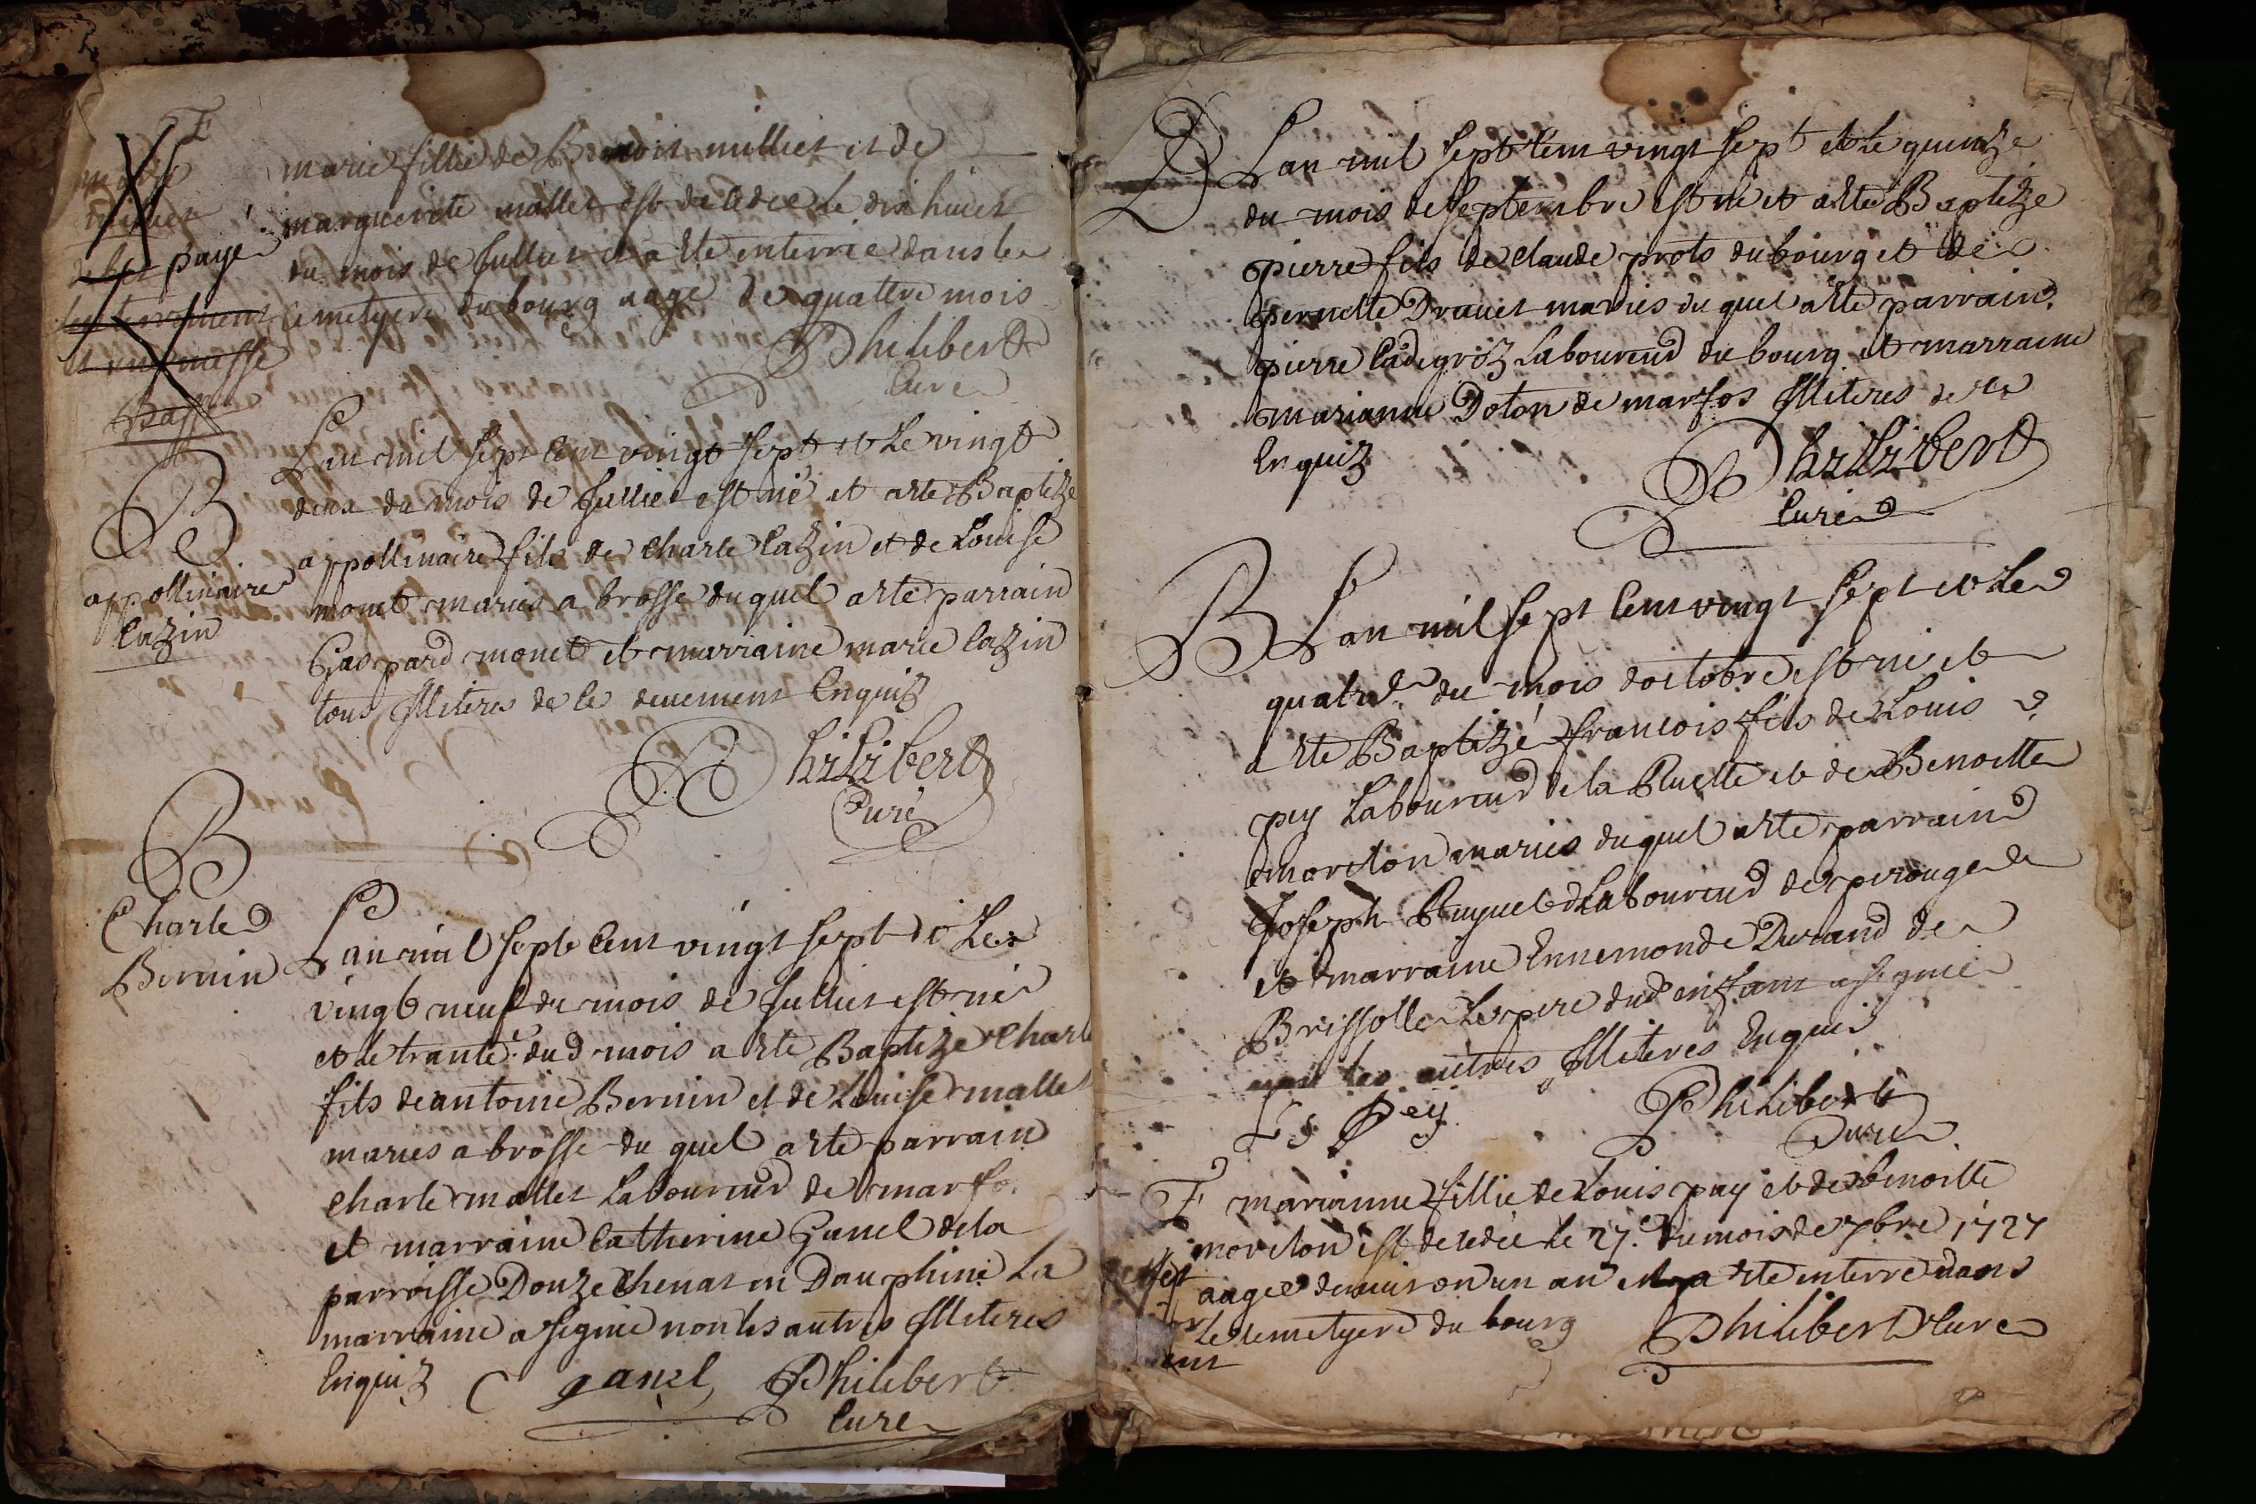 F
marie fillie de Benoit milliet et de
marguerite mallet est decedee le dix huict
du mois de Jullier et a ete enterrée dans le
cimetyere du bourg aage de quattre mois
Philibert
Curé
marie
milliet
paye
l'enterrement
et une messe
Basse
B
appollinaire
Cazin
L'an mil sept cent vingt sept et Le vingt
deux du mois de Jullier est né et a ete Baptizé
appollinaire fils de Charle Cazin et de Louise
monet mariés a brosse duquel a ete parrain
Gaspard monet et marraine marie Cazin
tous Illiteres de ce deuement Enquis
Philibert
Curé
B
Charle
Bernin
L'an mil sept cent vingt sept et Le
vingt neuf du mois de Jullier est né
et le trante dud mois a ete Baptizé Charle
fils de antoine Bernin et de Louise mallet
mariés a brosse du quel a ete parrain
Charle mallet Laboureur de marfo
et marraine Catherine Ganel de la
parroisse Douzechenat en Dauphiné La
marraine a signé non les autres Illiteres
Enquiz C ganel Philibert
Curé
B L'an mil sept Cent vingt sept et Le quinze
du mois de septembre est né et a ete Baptizé
pierre fils de claude prots du bourg et de
pernette Drauet mariés du quel a ete parrain
pierre Cadegroz Laboureur du bourg et marraine
marianne Doton de marfos Illiteres de ce
Enquiz
Philibert
Curé
B L'an mil sept Cent vingt sept et Le
quatre du mois doctobre est né et
a ete Baptizé francois fils de Louis
pey Laboureur de la Ruette et de Benoitte
moreton mariés duquel a ete parrain
Joseph Ruynet Laboureur de perouge
et marraine Ennemonde Durand de
Brissolle Le pere dud enfant a signé
non les autres Illiteres Enquis
Ls pey Philibert
Curé
F marianne fillie de Louis pay et de benoitte
moreton est decedée le 27. du mois de 7bre 1727
aagée denviron un an et a ete enterré dans
le cemetyere du bourg Philibert Curé